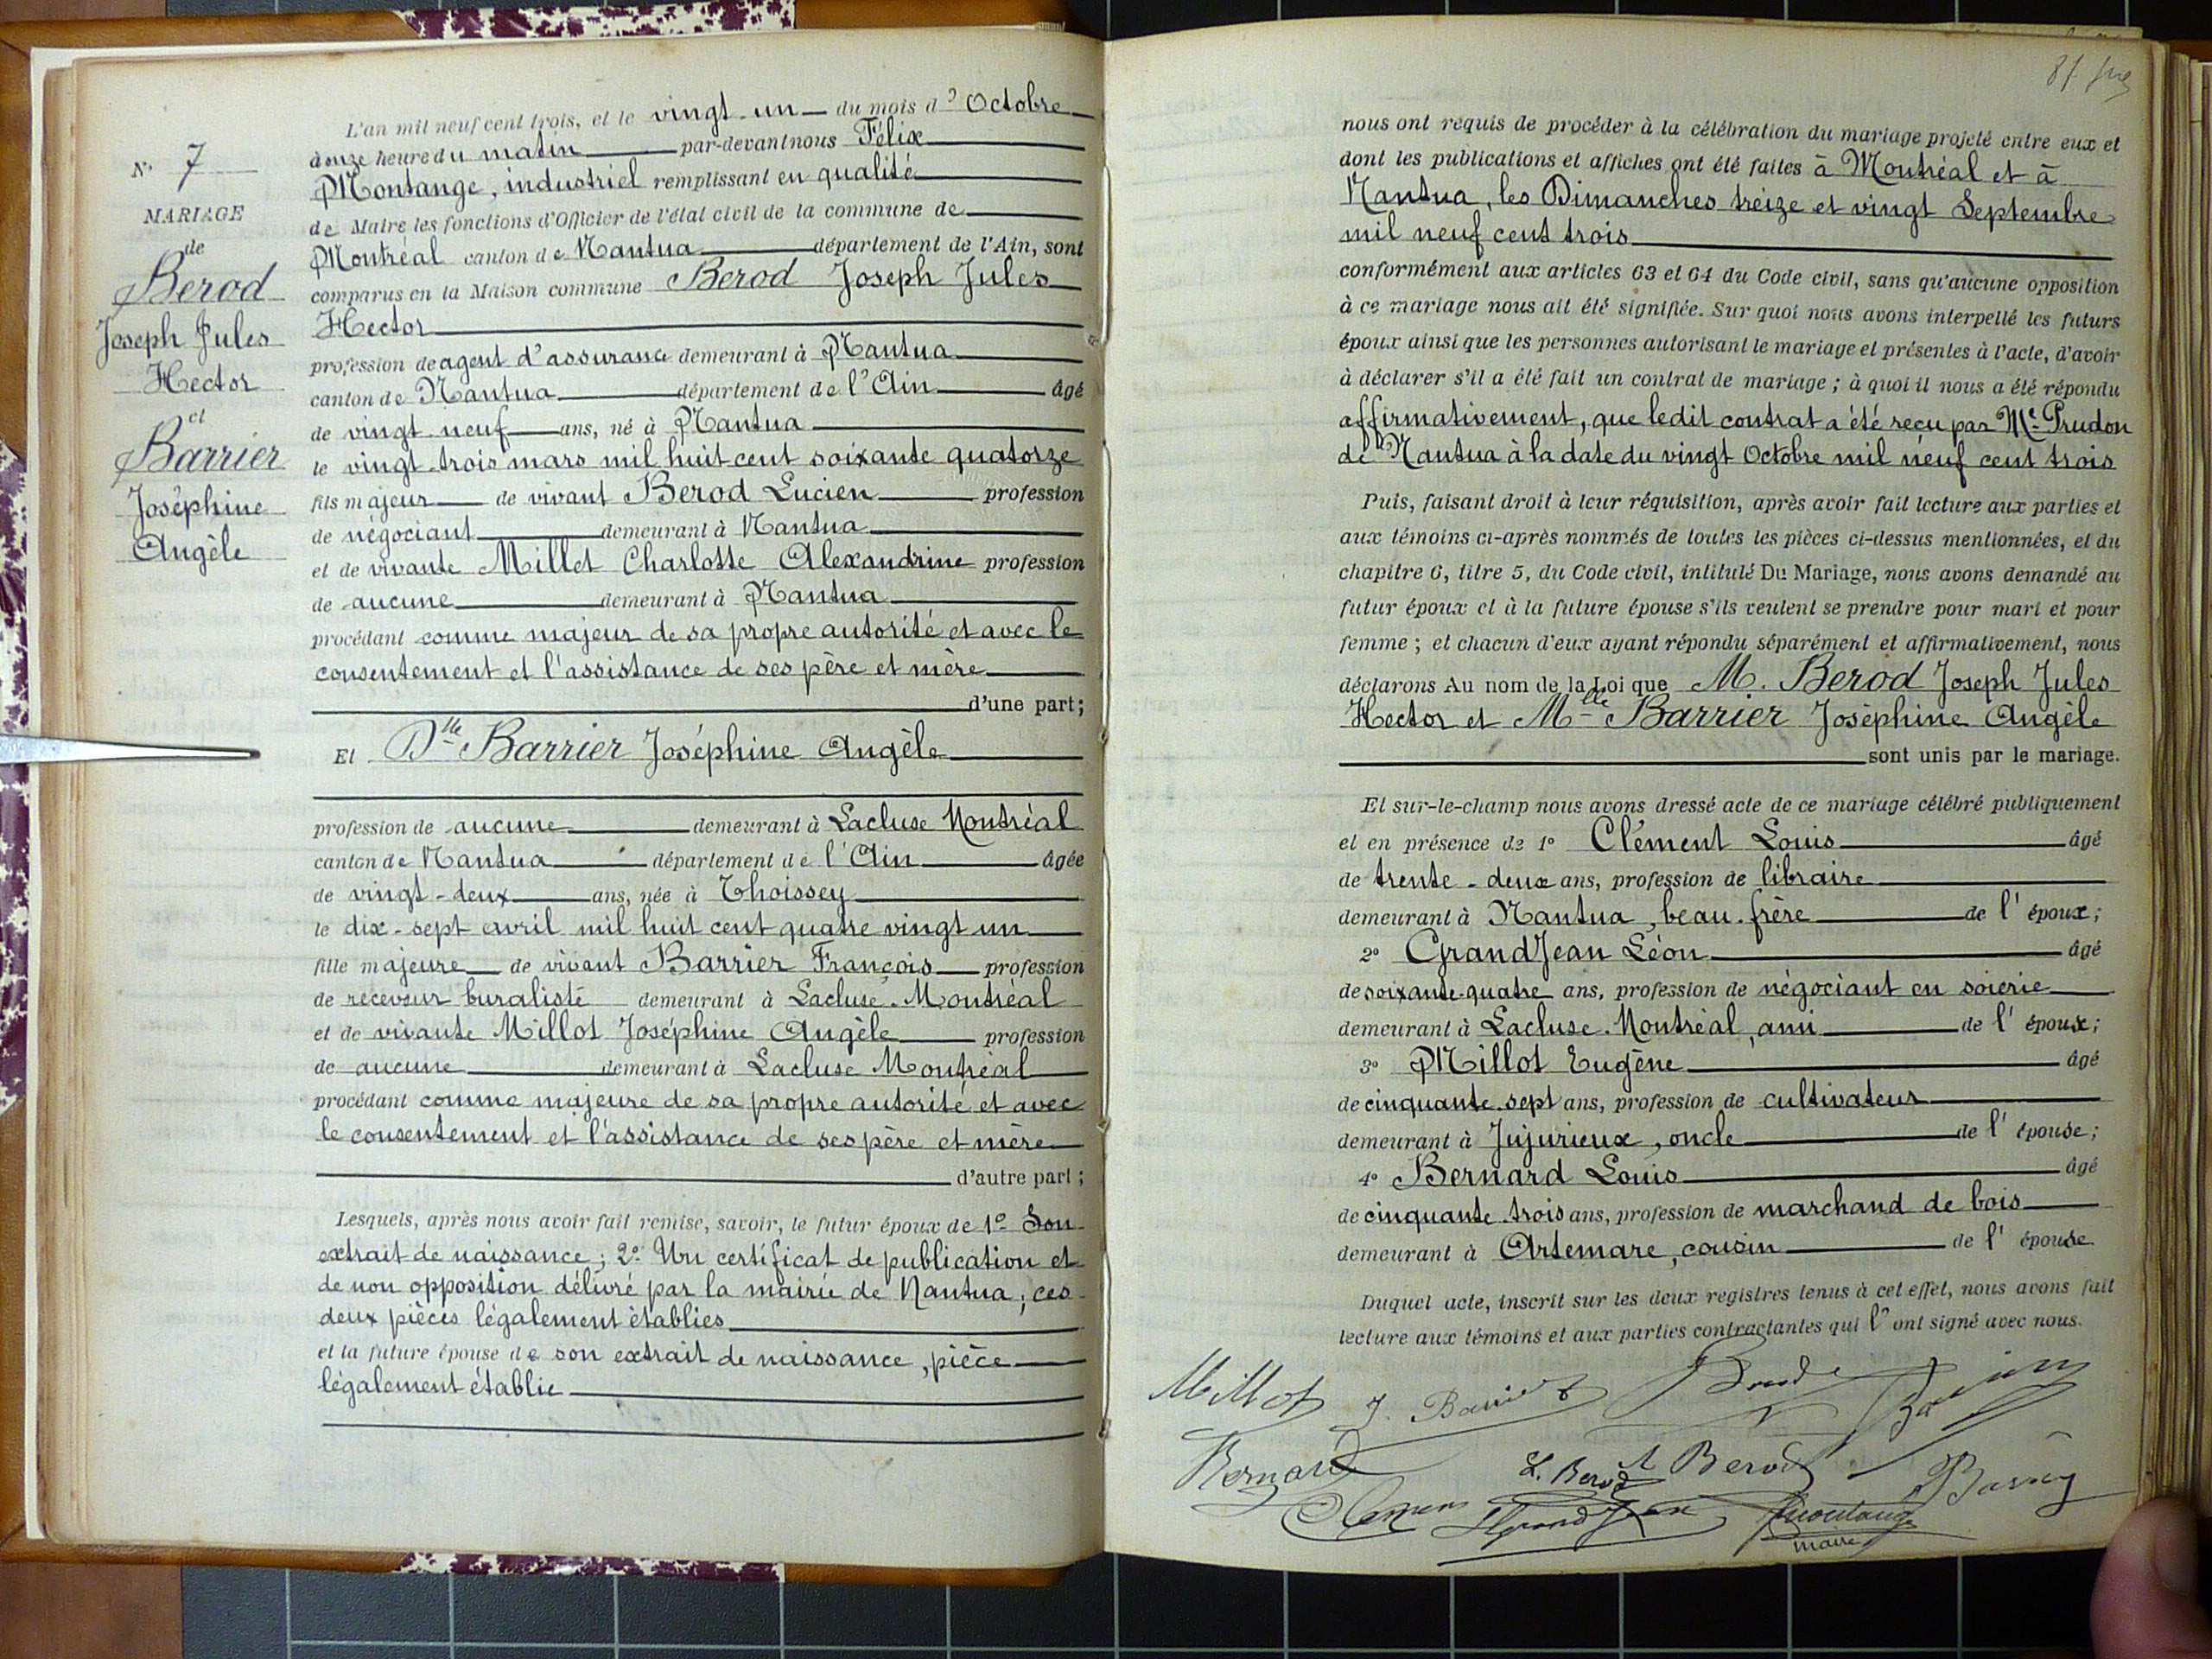 N° 7
MARIAGE
de
Berod
Joseph Jules
Hector
et
Barrier
Joséphine
Angèle
L'an mil neuf cent trois, et le vingt-un du mois d'Octobre
à onze heure du matin par-devant nous Félix
Montange, industriel remplissant en qualité
de Maire les fonctions d'Officier de l'état civil de la commune de
Montréal canton de Nantua département de l'Ain, sont
comparus en la Maison commune Berod Joseph Jules
Hector
profession de agent d'assurance demeurant à Nantua
canton de Nantua département de l'Ain âgé
de vingt-neuf ans, né à Nantua
le vingt-trois mars mil huit cent soixante quatorze
fils majeur de vivant Berod Lucien profession
de négociant demeurant à Nantua
et de vivante Millet Charlotte Alexandrine profession
de aucune demeurant à Nantua
procédant comme majeur de sa propre autorité et avec le
consentement et l'assistance de ses père et mère
d'une part;
Et Dlle Barrier Joséphine Angèle
profession de aucune demeurant à Lacluse Montréal
canton de Nantua département de l'Ain âgée
de vingt-deux ans, née à Thoissey
le dix-sept avril mil huit cent quatre vingt un
fille majeure de vivant Barrier François profession
de receveur buraliste demeurant à Lacluse-Montréal
et de vivante Millot Joséphine Angèle profession
de aucune demeurant à Lacluse Montréal
procédant comme majeure de sa propre autorité et avec
le consentement et l'assistance de ses père et mère
d'autre part;
Lesquels, après nous avoir fait remise, savoir, le futur époux de 1° Son
extrait de naissance; 2° Un certificat de publication et
de non opposition délivré par la mairie de Nantua; ces
deux pièces légalement établies
et la future épouse de son extrait de naissance, pièce
légalement établie
nous ont requis de procéder à la célébration du mariage projeté entre eux et
dont les publications et affiches ont été faites à Montréal et à
Nantua, les Dimanches treize et vingt Septembre
mil neuf cent trois
conformément aux articles 63 et 64 du Code civil, sans qu'aucune opposition
à ce mariage nous ait été signifiée. Sur quoi nous avons interpellé les futurs
époux ainsi que les personnes autorisant le mariage et présentes à l'acte, d'avoir
à déclarer s'il a été fait un contrat de mariage; à quoi il nous a été répondu
affirmativement, que ledit contrat a été reçu par Me Prudon
de Nantua à la date du vingt Octobre mil neuf cent trois
Puis, faisant droit à leur réquisition, après avoir fait lecture aux parties et
aux témoins ci-après nommés de toutes les pièces ci-dessus mentionnées, et du
chapitre 6, titre 5, du Code civil, intitulé Du Mariage, nous avons demandé au
futur époux et à la future épouse s'ils veulent se prendre pour mari et pour
femme; et chacun d'eux ayant répondu séparément et affirmativement, nous
déclarons Au nom de la Loi que M. Berod Joseph Jules
Hector et Mlle Barrier Joséphine Angèle
sont unis par le mariage.
Et sur-le-champ nous avons dressé acte de ce mariage célébré publiquement
et en présence de 1° Clément Louis âgé
de trente-deux ans, profession de libraire
demeurant à Nantua, beau-frère de l'époux;
2° GrandJean Léon âgé
de soixante-quatre ans, profession de négociant en soierie
demeurant à Lacluse-Montréal, ami de l'époux;
3° Millot Eugène âgé
de cinquante-sept ans, profession de cultivateur
demeurant à Jujurieux, oncle de l'épouse;
4° Bernard Louis âgé
de cinquante-trois ans, profession de marchand de bois
demeurant à Artemare, cousin de l'épouse
Duquel acte, inscrit sur les deux registres tenus à cet effet, nous avons fait
lecture aux témoins et aux parties contractantes qui l'ont signé avec nous.
Millot J. Barrier
Bernard L. Berod A Berod
Clément LGrandJean Montange
maire